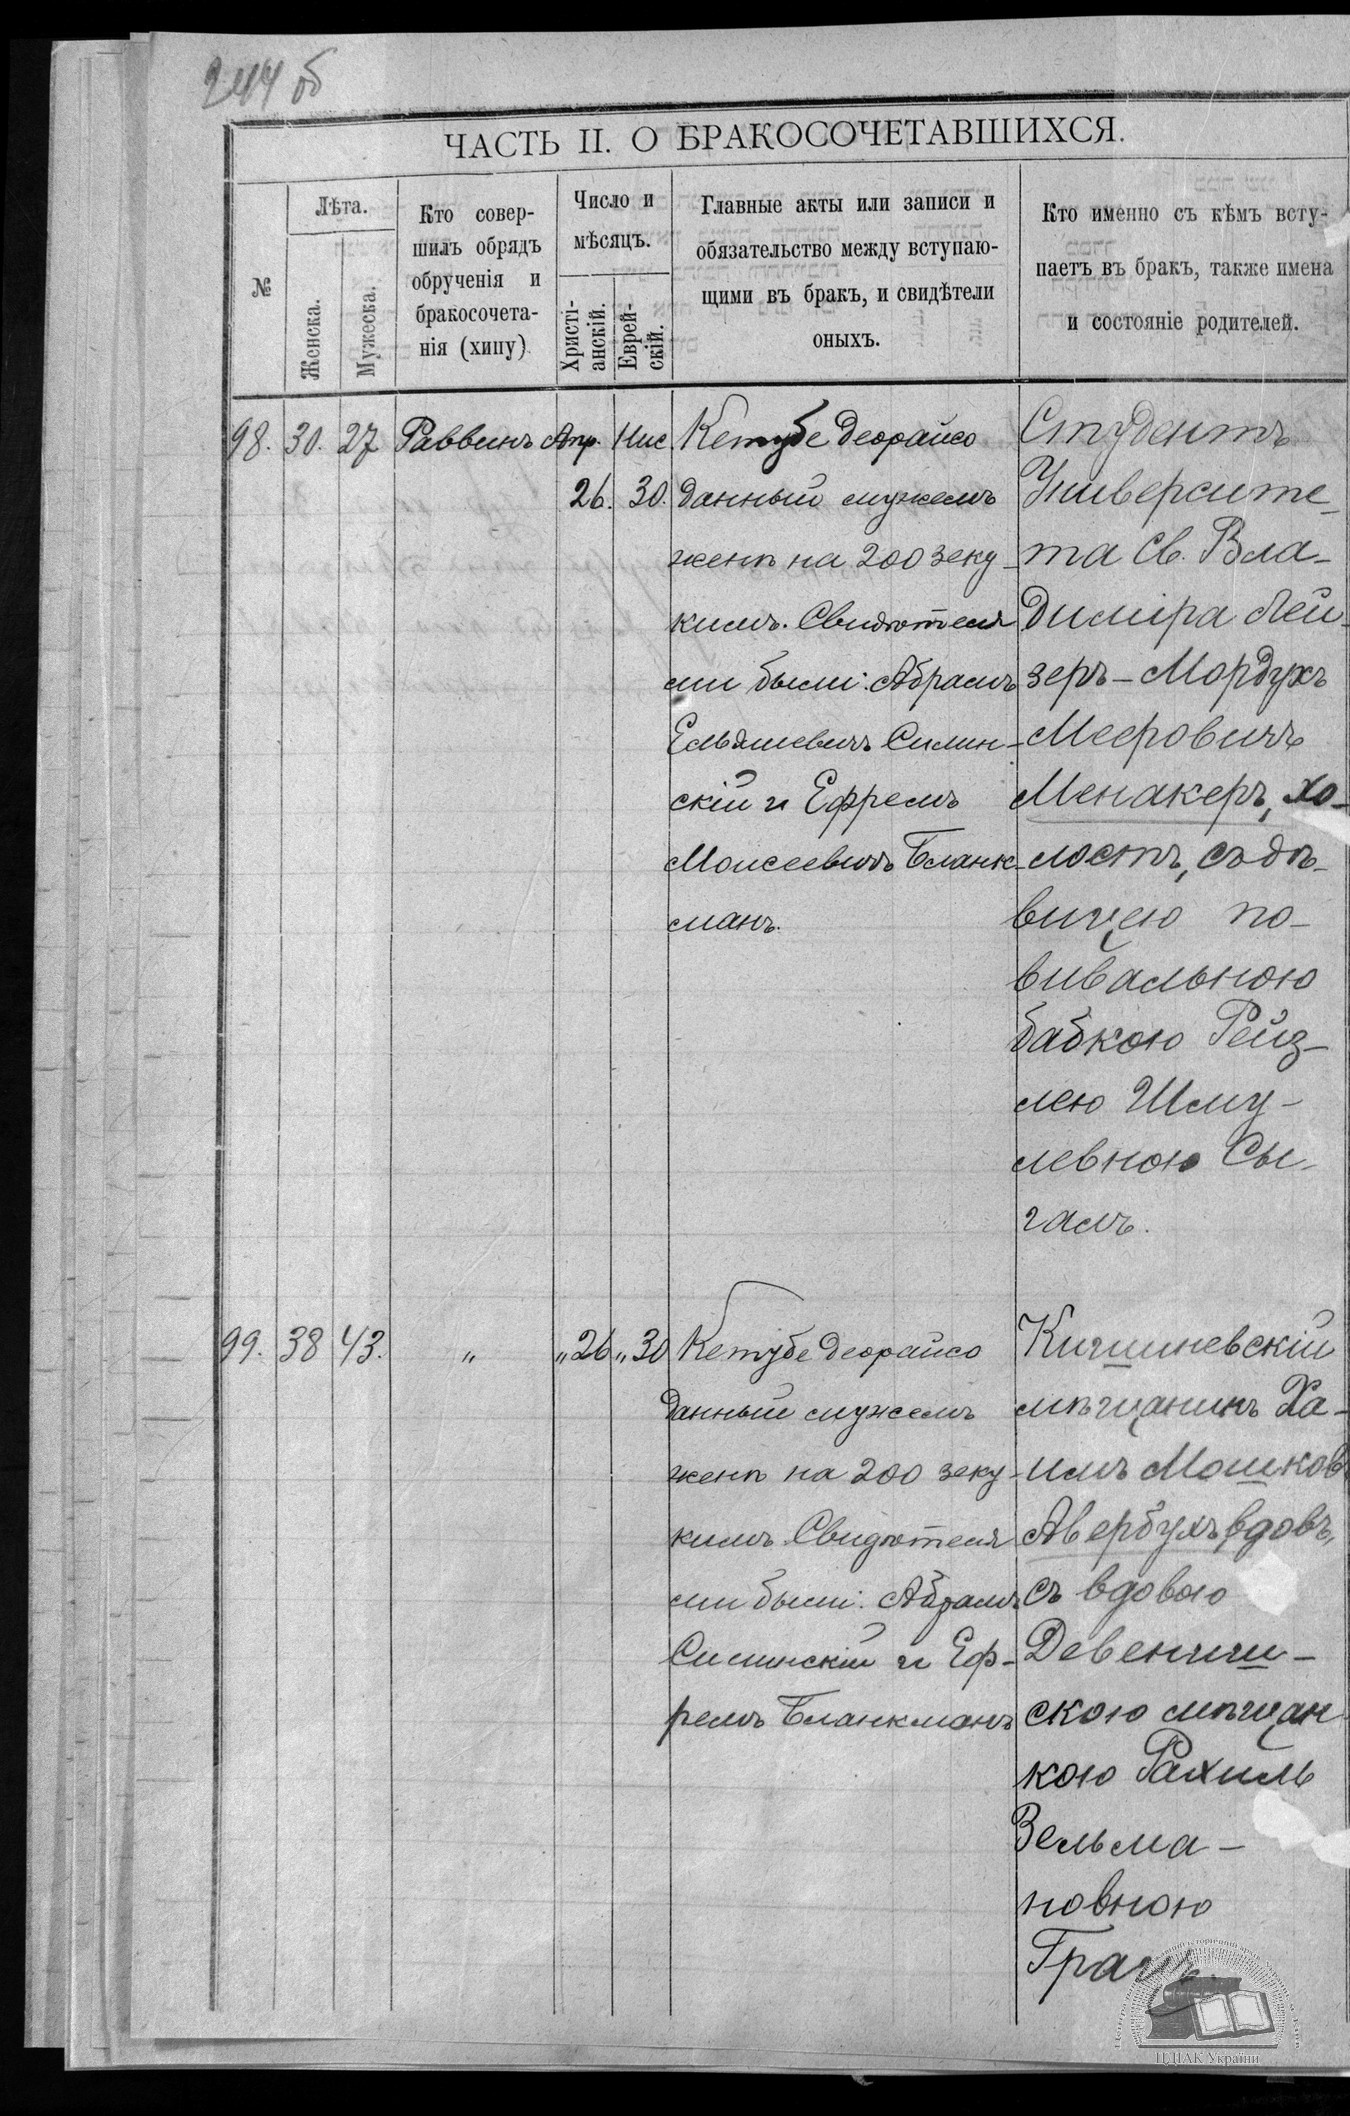 244 об
ЧАСТЬ II. О БРАКОСОЧЕТАВШИХСЯ.
№
Лѣта.
Женска.
Мужеска.
Кто совер-
шилъ обрядъ
обрученія и
бракосочета-
нія (хипу)
Число и
мѣсяцъ.
Христі-
анскій.
Еврей-
скій.
Главные акты или записи и
обязательство между вступаю-
щими въ бракъ, и свидѣтели
оныхъ.
Кто именно съ кѣмъ всту-
паетъ въ бракъ, также имена
и состояніе родителей.
98. 30. 27 Раввинъ Апр. Нис
26. 30.
Кетубе деорайсо
данный мужемъ
женѣ на 200 зеку-
кимъ. Свидѣтеля
ми были: Абрамъ
Ельяшевичъ Силин-
скій и Ефремъ
Моисеевичъ Бланк-
манъ.
Студентъ
Университе-
та Св. Вла-
диміра Лей-
зеръ-Мордухъ
Мееровичъ
Менакеръ, хо-
лостъ, съ дѣ-
вицею по-
вивальною
бабкою Рейз-
лею Шму-
левною Сы-
гамъ.
99. 38 43. " "26 "30
Кетубе деорайсо
данный мужемъ
женѣ на 200 зеку-
кимъ. Свидѣтеля
ми были: Абрамъ
Силинскій и Еф-
ремъ Бланкманъ
Кишиневскій
мѣщанинъ Ха-
имъ Мошков
Авербухъ, вдовъ,
съ вдовою
Девениш-
скою мѣщан
кою Рахиль
Зельма-
новною
ЦДІАК України